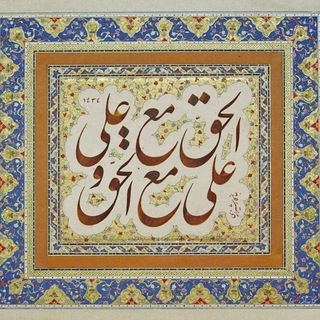 الحق مع علی
و علی مع الحق
۱۴۳۴